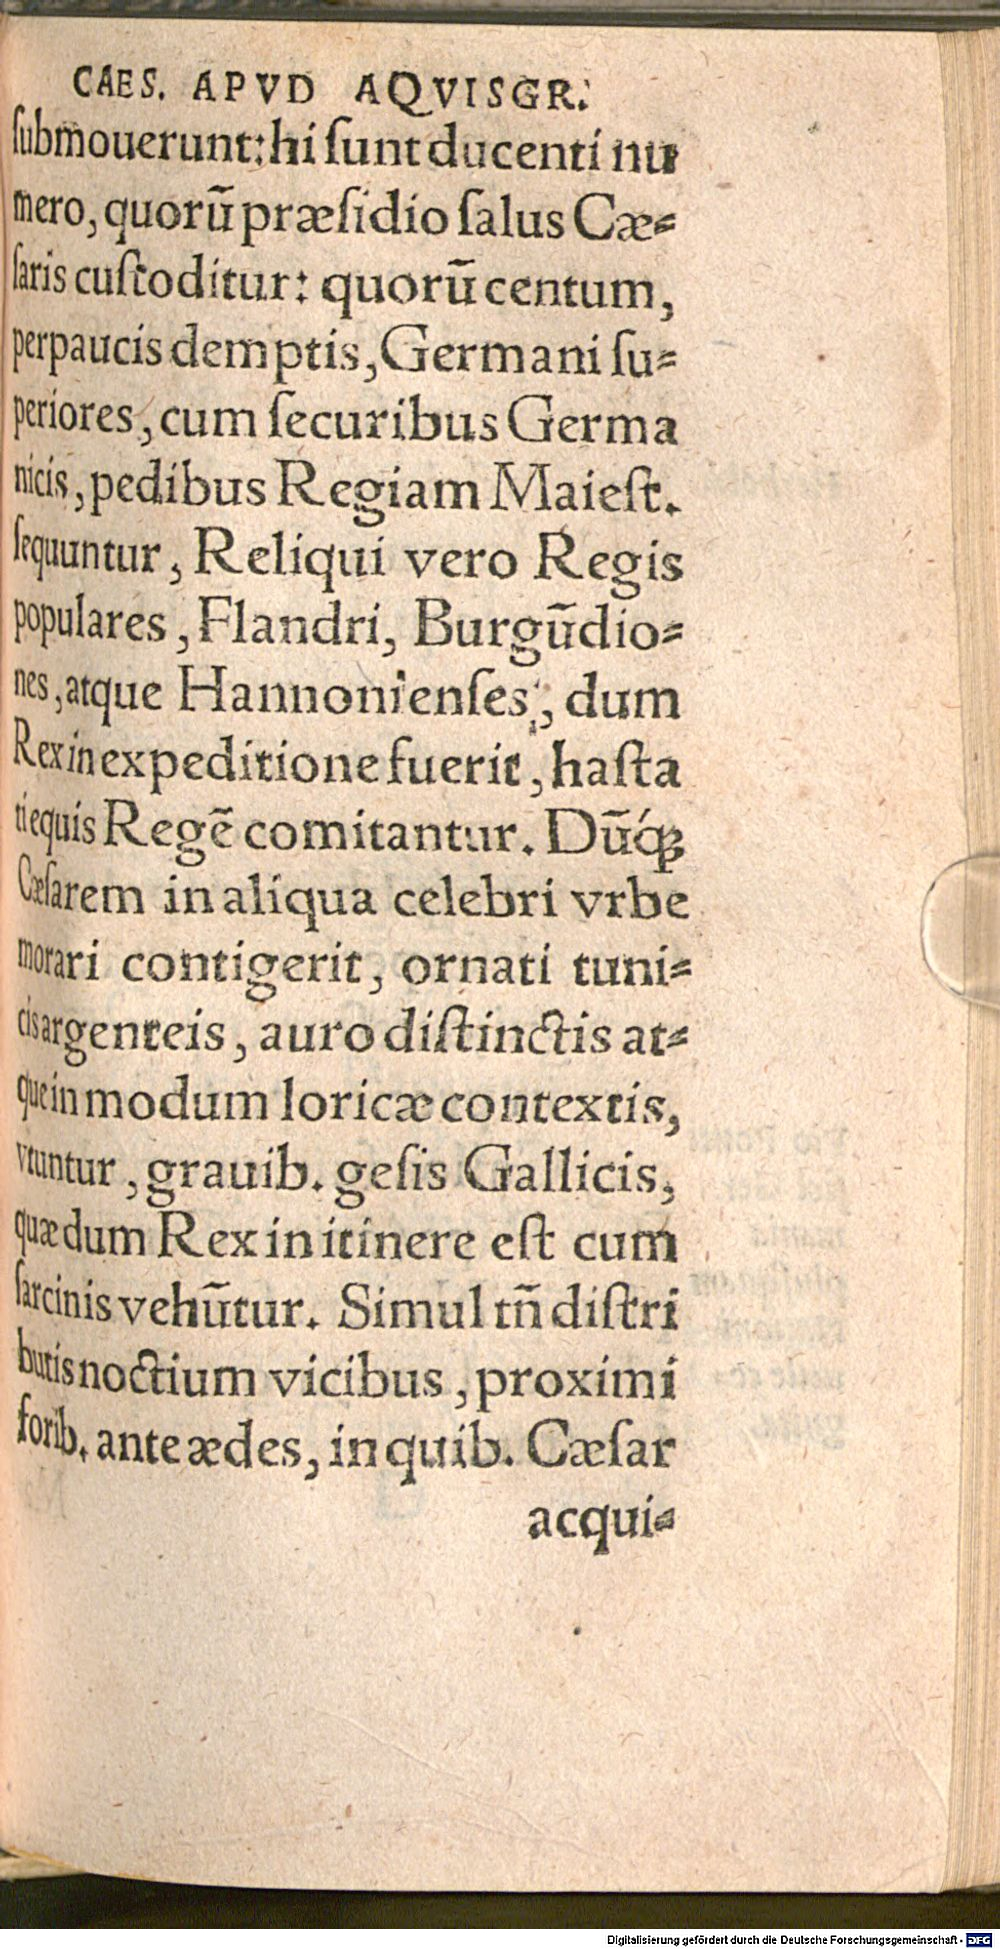 CAES. APVD AQVISGR.
ſubmouerunt: hi ſunt ducenti nu
mero, quorū præſidio ſalus Cæ⸗
ſaris cuſtoditur: quorū centum,
perpaucis demptis, Germani ſu⸗
periores, cum ſecuribus Germa
nicis, pedibus Regiam Maieſt.
ſequuntur, Reliqui vero Regis
populares, Flandri, Burgūdio⸗
nes, atque Hannonienſes, dum
Rex in expeditione fuerit, haſta
ti equis Regē comitantur. Dūq́ꝫ
Cæſarem in aliqua celebri vrbe
morari contigerit, ornati tuni⸗
cis argenteis, auro diſtinctis at⸗
que in modum loricæ contextis,
vtuntur, grauib. geſis Gallicis,
quæ dum Rex in itinere eſt cum
ſarcinis vehūtur. Simul tñ diſtri
butis noctium vicibus, proximi
forib. ante ædes, in quib. Cæſar
acqui⸗
Digitalisierung gefördert durch die Deutsche Forschungsgemeinschaft - DFG